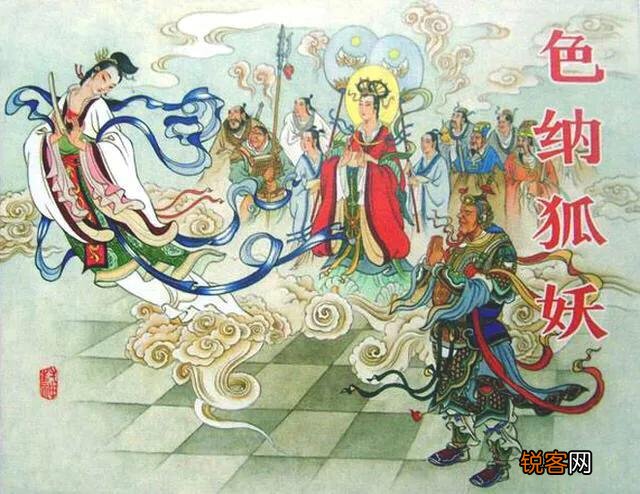 色纳狐妖
锐客网